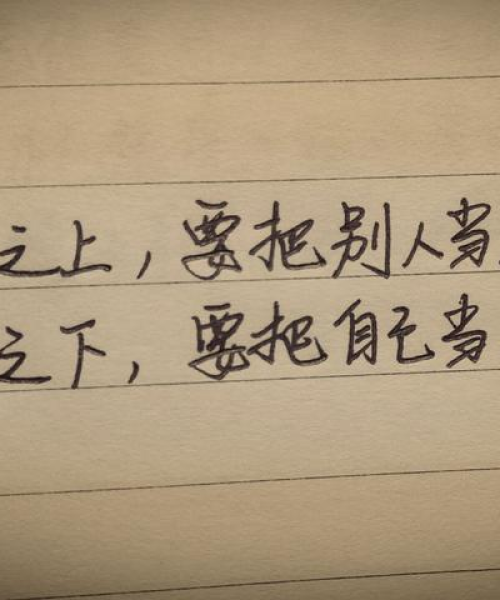 之上，要把别人当
之下，要把自己当